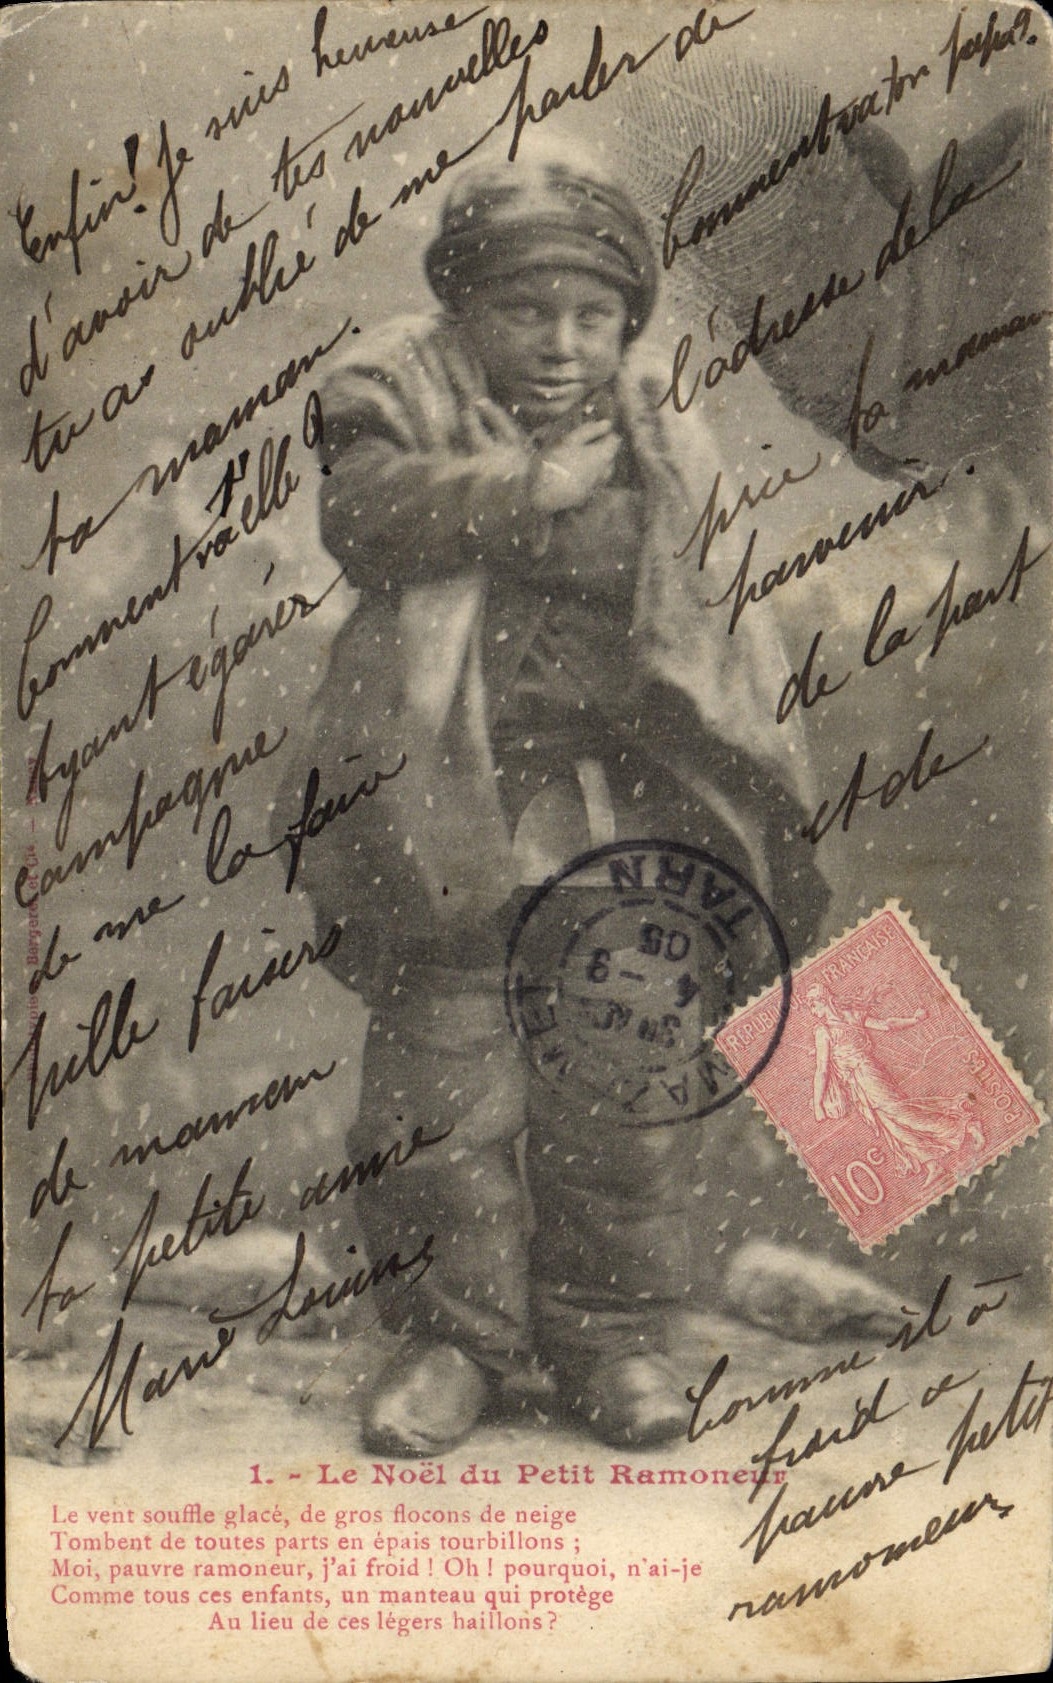 Enfin! Je suis heureuse
d'avoir de tes nouvelles
tu as oublié de me parler de
ta maman.
Comment va t'elle ?
Ayant égarer
l'adresse de la
campagne
prie ta maman
de me la faire
parvenir.
Mille baisers
de la part
de maman
et de
ta petite amie
Marie Louise
Comment va ton papa?
Comme il à
froid ce
pauvre petit
ramoneur
RÉPUBLIQUE FRANÇAISE
POSTES
10c
MAZAMET
TARN
4 - 3
05
Bergeret et Cie
1. - Le Noël du Petit Ramoneur
Le vent souffle glacé, de gros flocons de neige
Tombent de toutes parts en épais tourbillons ;
Moi, pauvre ramoneur, j'ai froid ! Oh ! pourquoi, n'ai-je
Comme tous ces enfants, un manteau qui protège
Au lieu de ces légers haillons ?